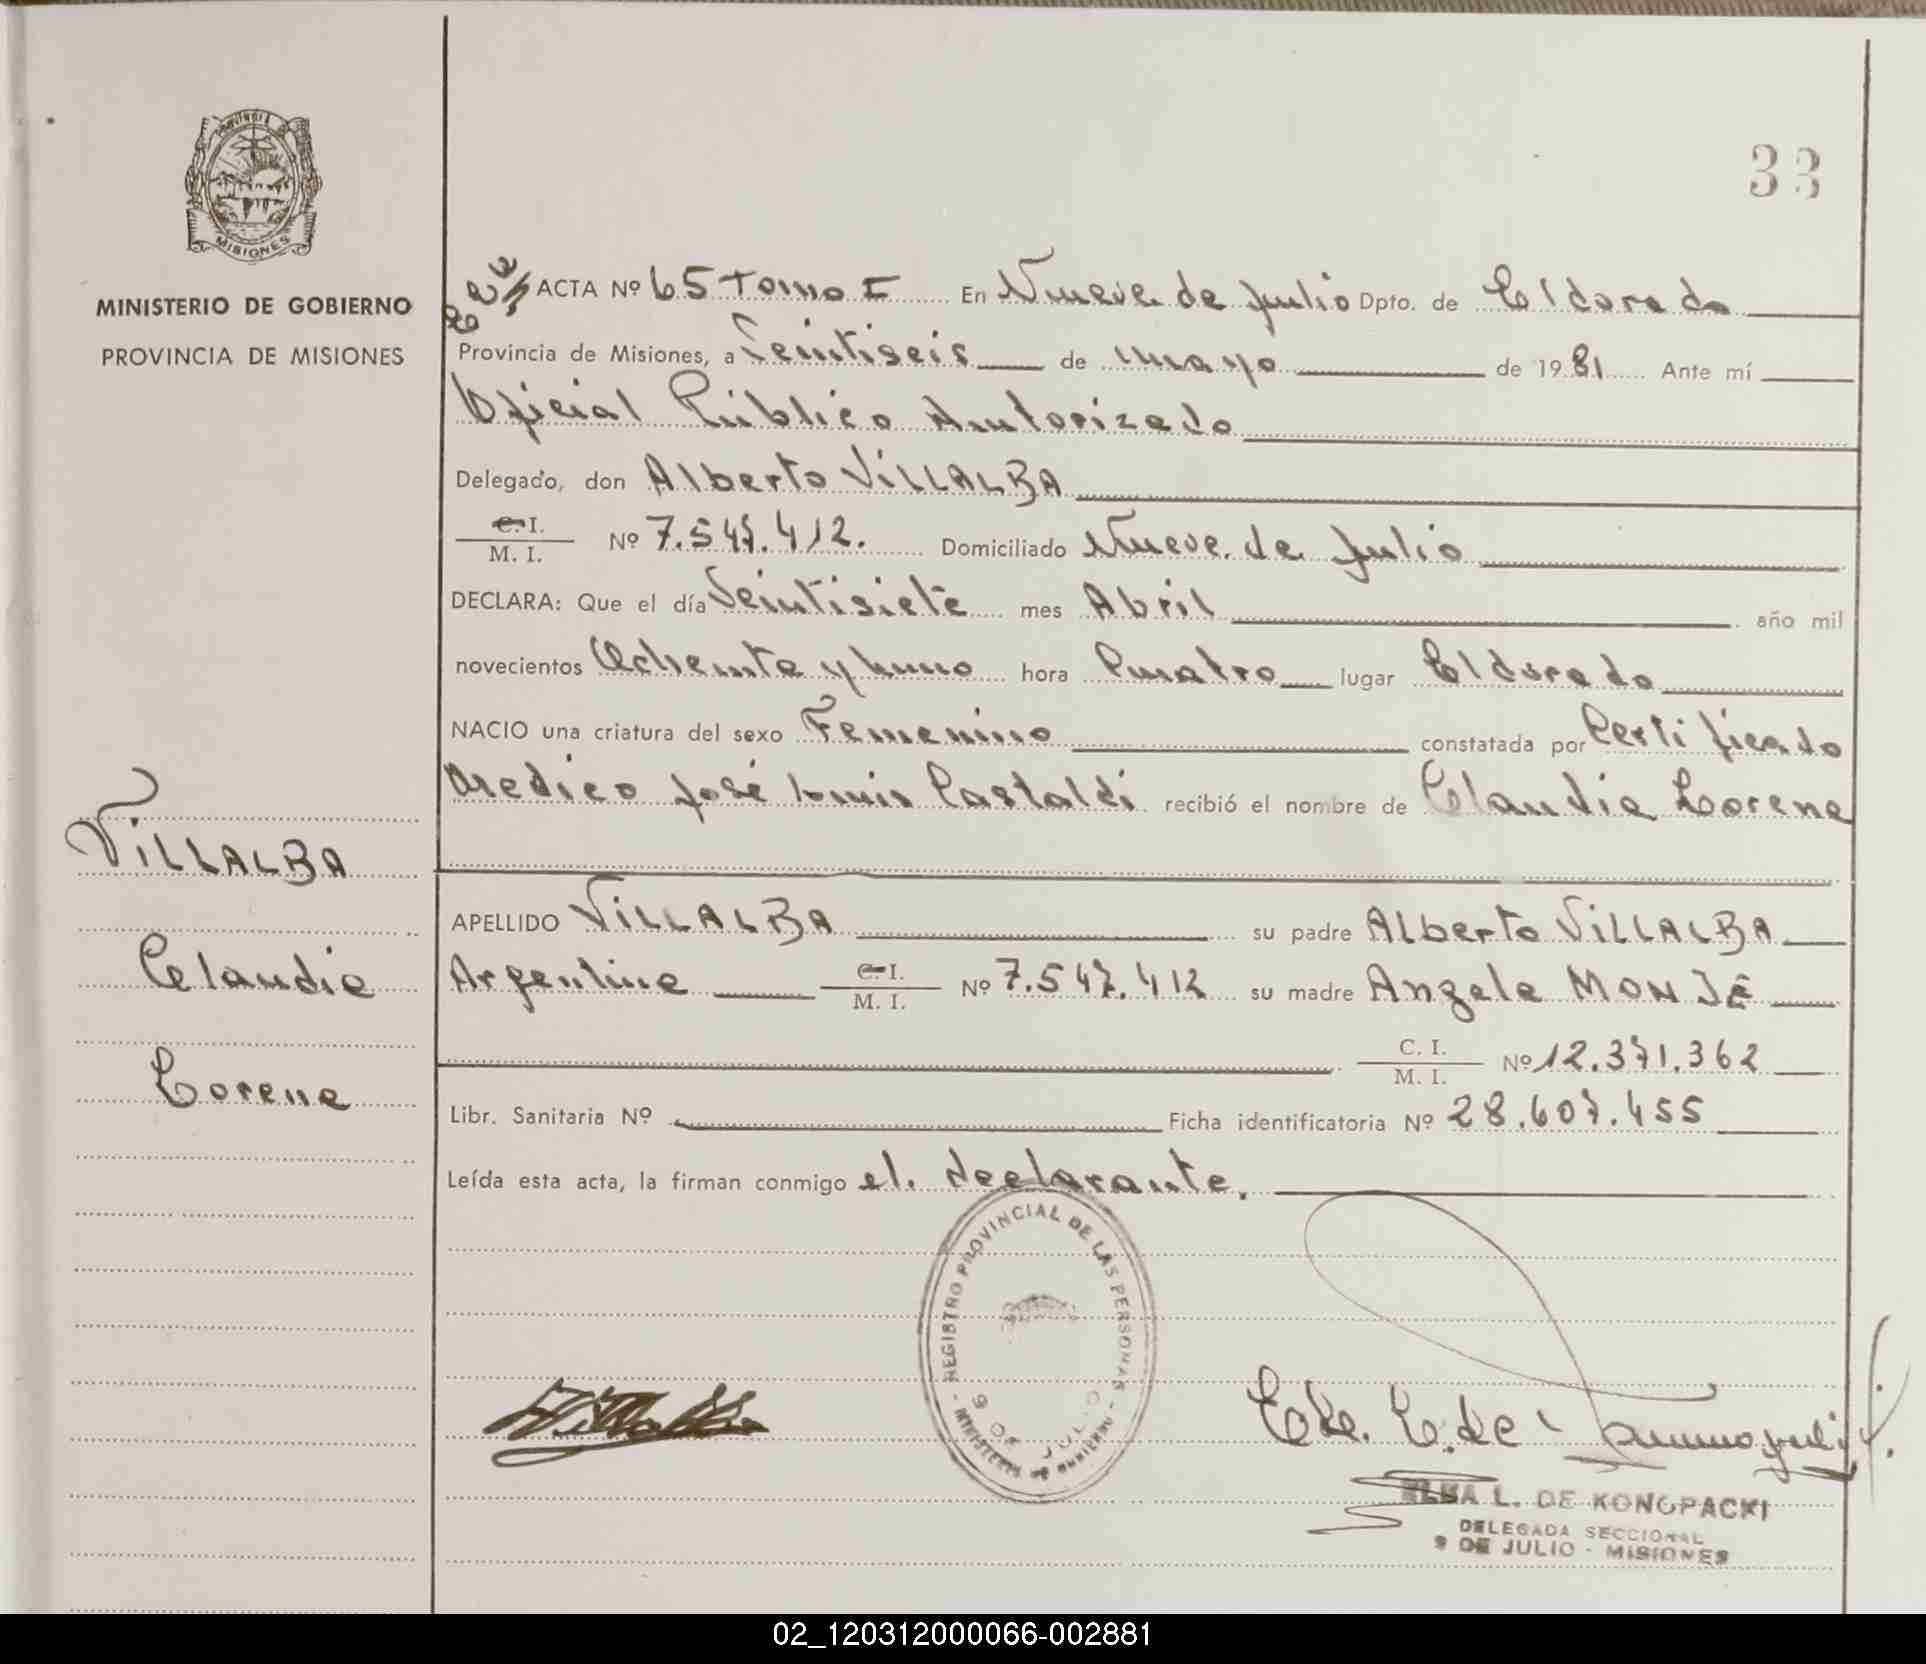 33
PROVINCIA DE
MISIONES
MINISTERIO DE GOBIERNO
PROVINCIA DE MISIONES
ACTA Nº 65 Tomo I En Nueve de Julio Dpto. de Eldorado
Provincia de Misiones, a Veintiseis de mayo de 1981 Ante mí
Oficial Público Autorizado
Delegado, don Alberto VILLALBA
C. I.
M. I. Nº 7.547.412. Domiciliado Nueve de Julio
DECLARA: Que el día Veintisiete mes Abril año mil
novecientos Ochenta y uno hora Cuatro lugar Eldorado
NACIO una criatura del sexo Femenino constatada por Certificado
Medico José Luis Castaldi recibió el nombre de Claudia Lorena
VILLALBA
Claudia
Lorena
APELLIDO VILLALBA su padre Alberto VILLALBA
Argentina C. I.
M. I. Nº 7.547.412 su madre Angela MONJE
C. I.
M. I. Nº 12.371.362
Libr. Sanitaria Nº Ficha identificatoria Nº 28.607.455
Leída esta acta, la firman conmigo el declarante.
REGISTRO PROVINCIAL DE LAS PERSONAS
- MINISTERIO DE GOBIERNO -
9 DE JULIO
ELMA L. DE KONOPACKI
DELEGADA SECCIONAL
9 DE JULIO - MISIONES
02_120312000066-002881